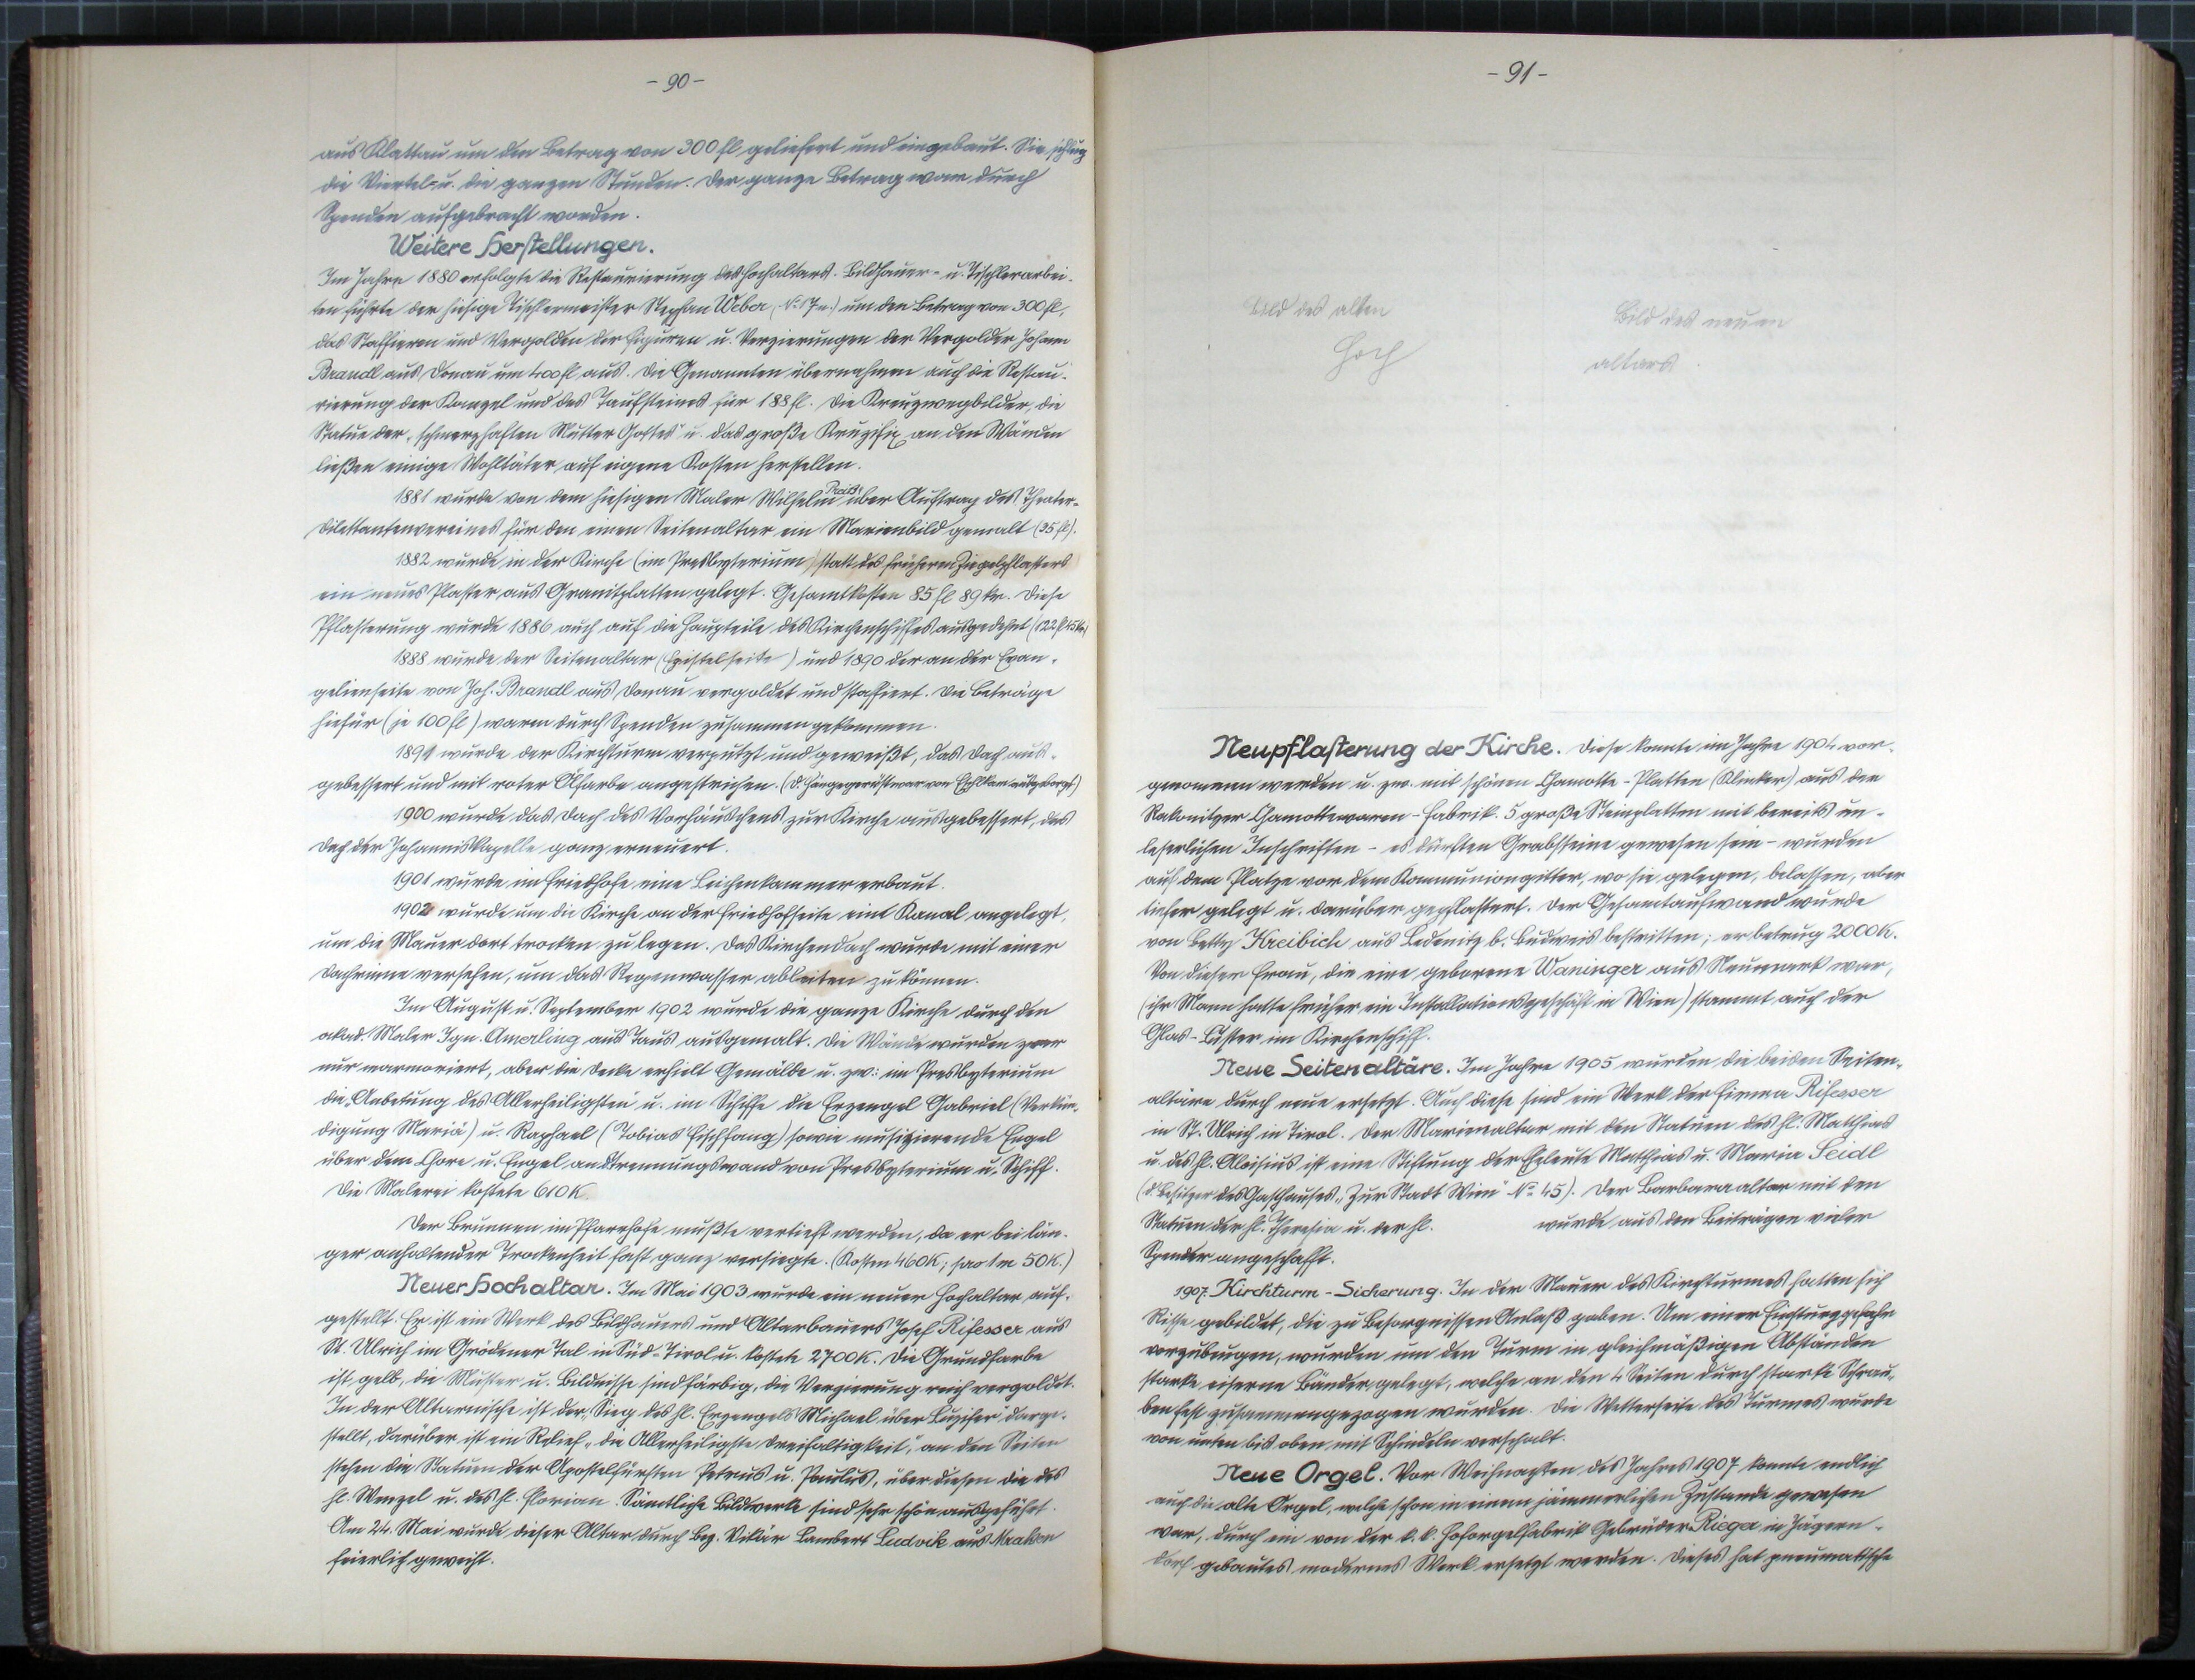 - 90 -
aus Klattau um den Betrag von 300 fl geliefert und eingebaut. Sie schlug
die Viertel- u. die ganzen Stunden. Der ganze Betrag war durch
Spenden aufgebracht worden.
Weitere Herstellungen.
Im Jahre 1880 erfolgte die Restaurierung des Hochaltars. Bildhauer- u. Tischlerarbei-
ten führte der hiesige Tischlermeister Stephan Weber (N: 17) um den Betrag von 300 fl,
das Staffieren und Vergolden der Figuren u. Verzierungen der Vergolder Johann
Brandl aus Donau um 400 fl aus. Die Genannten übernahmen auch die Restau-
rierung der Kanzel und des Taufsteines für 188 fl. Die Kreuzwegbilder, die
Statue der „schmerzhaften Mutter Gottes" u. das große Kruzifix an den Wänden
ließen einige Wohltäter auf eigene Kosten herstellen.
1881 wurde von dem hiesigen Maler Wilhelm über Auftrag des Theater-
dilettantenvereines für den einen Seitenaltar ein Marienbild gemalt (35 fl).
1882 wurde in der Kirche (im Presbyterium) statt des früheren Ziegelpflasters
ein neues Plaster aus Granitplatten gelegt. Gesamtkosten 85 fl 89 kr. Diese
Pflasterung wurde 1886 auch auf die Hauptteile des Kirchenschiffes ausgedehnt (122 fl 45 kr)
1888 wurde der Seitenaltar (Epistelseite) und 1890 der an der Evan-
gelienseite von Joh. Brandl aus Donau vergoldet und staffiert. Die Beträge
hiefür (je 100 fl) waren durch Spenden zusammengekommen.
1891 wurde der Kirchturm verputzt und geweißt, das Dach aus-
gebessert und mit roter Ölfarbe angestrichen. (D. Hängegerüst war von Eschlkam ausgeborgt)
1900 wurde das Dach des Vorhäuschens zur Kirche ausgebessert, das
Dach der Johanniskapelle ganz erneuert.
1901 wurde im Friedhofe eine Leichenkammer erbaut.
1902 wurde um die Kirche an der Friedhofseite eine Kanal angelegt,
um die Mauer dort trocken zu legen. Das Kirchendach wurde mit einer
Dachrinne versehen, um das Regenwasser ableiten zu können.
Im August u. September 1902 wurde die ganze Kirche durch den
akad. Maler Ign. Amerling aus Taus ausgemalt. Die Wände wurden zwar
nur marmoriert, aber die Decke erhielt Gemälde u. zw: im Presbyterium
die „Anbetung des Allerheiligsten" u. im Schiffe die Erzengel Gabriel (Verkün-
digung Mariä) u. Raphael (Tobias' Fischfang) sowie musizierende Engel
über dem Chore u. Engel an d. Trennungswand von Presbyterium u. Schiff.
Die Malerei kostete 610 K.
Der Brunnen im Pfarrhofe mußte vertieft werden, da er bei län-
ger anhaltender Trockenheit fast ganz versiegte. (Kosten 460 K; pro 1 m 50 K.)
Neuer Hochaltar. Im Mai 1903 wurde ein neuer Hochaltar auf-
gestellt. Er ist ein Werk des Bildhauers und Altarbauers Josef Rifesser aus
St. Ulrich im Grödener Tal in Süd-Tirol u. kostete 2700 K. Die Grundfarbe
ist gelb, die Muster u. Bildnisse sind färbig, die Verzierung reich vergoldet.
In der Altarnische ist der „Sieg des hl. Erzengels Michael über Luzifer" darge-
stellt, darüber ist ein Relief „die Allerheiligste Dreifaltigkeit", an den Seiten
stehen die Statuen der Apostelfürsten Petrus u. Paulus, über diesen die des
hl. Wenzel u. des hl. Florian. Sämtliche Bildwerke sind sehr schön ausgeführt.
Am 24. Mai wurde dieser Altar durch Bez. Vikär Lambert Ludvik aus Mraken
feierlich geweiht.
- 91 -
Bild des alten
Hoch
Bild des neuen
altars.
Neupflasterung der Kirche. Diese konnte im Jahre 1904 vor-
genommen werden u. zw. mit schönen Chamotte-Platten (Klinker) aus der
Rakonitzer Chamottewaren-Fabrik. 5 große Steinplatten mit bereits un-
leserlichen Inschriften - es dürften Grabsteine gewesen sein - wurden
auf dem Platze vor dem Kommuniongitter, wo sie gelegen, belassen, aber
tiefer gelegt u. darüber gepflastert. Der Gesamtaufwand wurde
von Betty Kreibich aus Ledenitz b. Budweis bestritten; er betrug 2000 K.
Von dieser Frau, die eine geborene Waninger aus Neumark war,
(ihr Mann hatte früher ein Installationsgeschäft in Wien) stammt auch der
Glas-Lüster im Kirchenschiff.
Neue Seitenaltäre. Im Jahre 1905 wurden die beiden Seiten-
altäre durch neue ersetzt. Auch diese sind ein Werk der Firma Rifesser
in St. Ulrich in Tirol. Der Marienaltar mit den Statuen des hl. Matthias
u. des hl. Aloisius ist eine Stiftung der Eheleute Matthias u. Maria Seidl
(d. Besitzer des Gasthauses „Zur Stadt Wien" No 45). Der Barbaraaltar mit den
Statuen der hl. Theresia u. der hl. wurde aus den Beiträgen vieler
Spender angeschafft.
1907. Kirchturm-Sicherung. In der Mauer des Kirchturmes hatten sich
Risse gebildet, die zu Besorgnissen Anlaß gaben. Um einer Einsturzgefahr
vorzubeugen, wurden um den Turm in gleichmäßigen Abständen
starke eiserne Bänder gelegt, welche an den 4 Seiten durch starke Schrau-
ben fest zusammengezogen wurden. Die Wetterseite des Turmes wurde
von unten bis oben mit Schindeln verschalt.
Neue Orgel. Vor Weihnachten des Jahres 1907 konnte endlich
auch die alte Orgel, welche schon in einem jämmerlichen Zustande gewesen
war, durch ein von der k. k. Hoforgelfabrik Gebrüder Rieger in Jägern-
dorf gebautes modernes Werk ersetzt werden. Dieses hat pneumatische